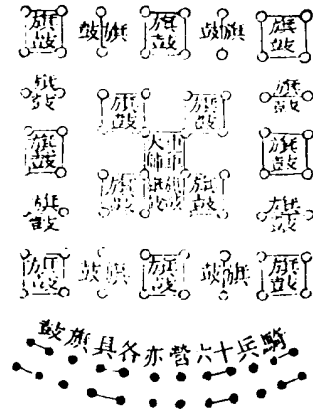 旗鼓 旗鼓 旗鼓 旗鼓 旗鼓
旗鼓 旗鼓
旗鼓 旗鼓
旗鼓 中軍 大師 旗鼓
旗鼓 旗鼓
旗鼓 旗鼓
旗鼓 旗鼓 旗鼓 旗鼓 旗鼓
騎兵十六營亦各具旗鼓